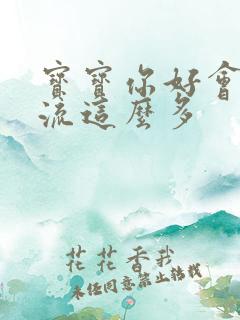 寶寶你好會
流這麼多
花花香菽
未經同意禁止轉載